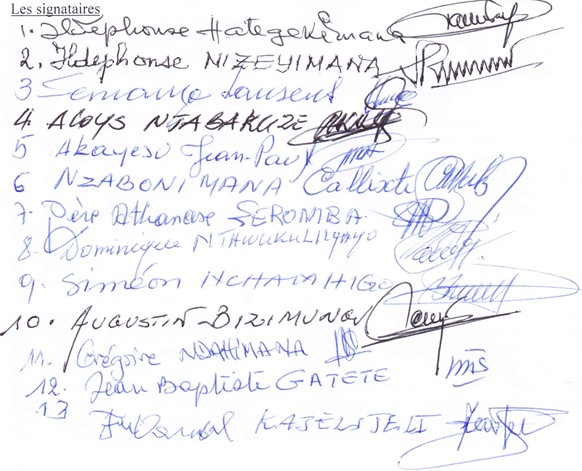 Les signataires
1. Ildephonse Hategekimana
2. Ildephonse NIZEYIMANA
3 Semanza Laurent
4 ALOYS NTABAKUZE
5 Akayesu Jean-Paul
6 NZABONIMANA Callixte
7. Père Athanase SEROMBA
8. Dominique NTAWUKULILYAYO
9. Siméon NCHAMIHIGO
10. AUGUSTIN BIZIMUNGU
11. Grégoire NDAHIMANA
12. Jean Baptiste GATETE
13 KAJELIJELI